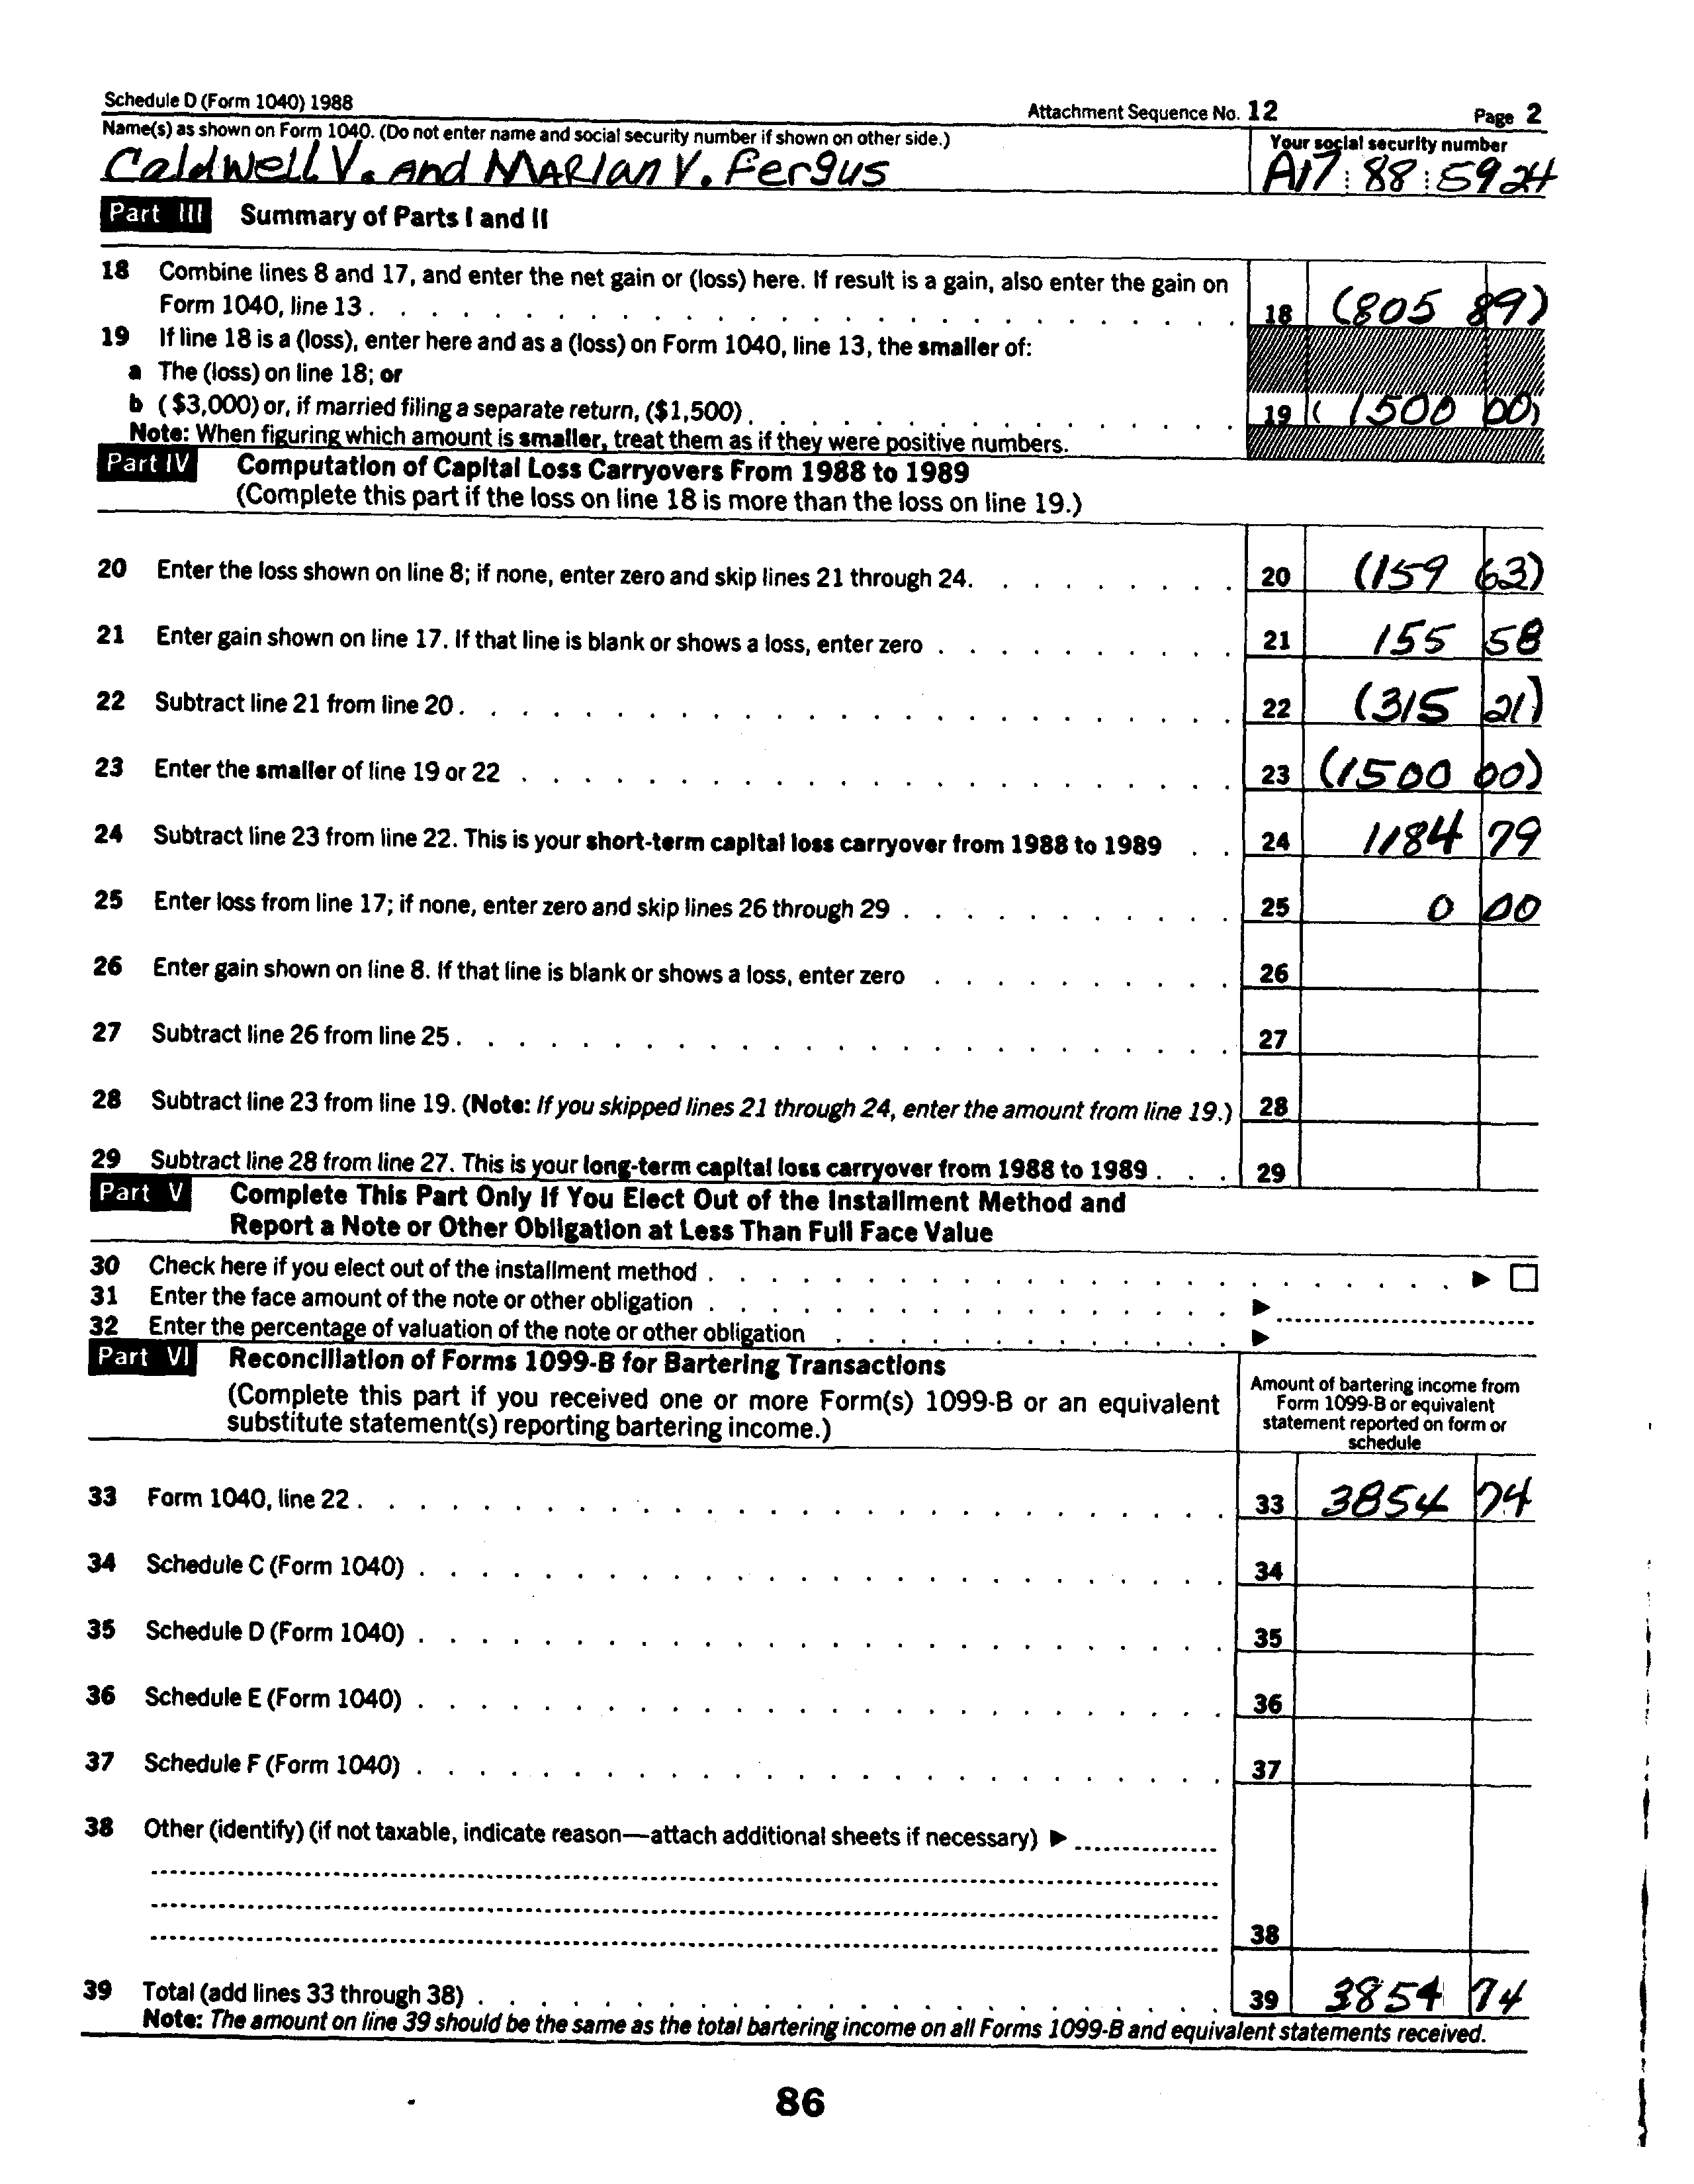 Schedule D (Form 1040) 1988 Attachment Sequence No. 12 Page 2
Name(s) as shown on Form 1040. (Do not enter name and social security number if shown on other side.) Your social security number
Caldwell V. and Marian V. Fergus A17 88 5924
Part III Summary of Parts I and II
18 Combine lines 8 and 17, and enter the net gain or (loss) here. If result is a gain, also enter the gain on
Form 1040, line 13 . 18 (805 89)
19 If line 18 is a (loss), enter here and as a (loss) on Form 1040, line 13, the smaller of:
a The (loss) on line 18; or
b ($3,000) or, if married filing a separate return, ($1,500) . 19 (1500 00)
Note: When figuring which amount is smaller, treat them as if they were positive numbers.
Part IV Computation of Capital Loss Carryovers From 1988 to 1989
(Complete this part if the loss on line 18 is more than the loss on line 19.)
20 Enter the loss shown on line 8; if none, enter zero and skip lines 21 through 24. 20 (159 63)
21 Enter gain shown on line 17. If that line is blank or shows a loss, enter zero . 21 155 58
22 Subtract line 21 from line 20 . 22 (315 21)
23 Enter the smaller of line 19 or 22 . 23 (1500 00)
24 Subtract line 23 from line 22. This is your short-term capital loss carryover from 1988 to 1989 . 24 1184 79
25 Enter loss from line 17; if none, enter zero and skip lines 26 through 29 . 25 0 00
26 Enter gain shown on line 8. If that line is blank or shows a loss, enter zero . 26
27 Subtract line 26 from line 25 . 27
28 Subtract line 23 from line 19. (Note: If you skipped lines 21 through 24, enter the amount from line 19.) 28
29 Subtract line 28 from line 27. This is your long-term capital loss carryover from 1988 to 1989 . 29
Part V Complete This Part Only If You Elect Out of the Installment Method and
Report a Note or Other Obligation at Less Than Full Face Value
30 Check here if you elect out of the installment method . ▶ □
31 Enter the face amount of the note or other obligation . ▶
32 Enter the percentage of valuation of the note or other obligation . ▶
Part VI Reconciliation of Forms 1099-B for Bartering Transactions
(Complete this part if you received one or more Form(s) 1099-B or an equivalent
substitute statement(s) reporting bartering income.)
Amount of bartering income from
Form 1099-B or equivalent
statement reported on form or
schedule
33 Form 1040, line 22 . 33 3854 74
34 Schedule C (Form 1040) . 34
35 Schedule D (Form 1040) . 35
36 Schedule E (Form 1040) . 36
37 Schedule F (Form 1040) . 37
38 Other (identify) (if not taxable, indicate reason—attach additional sheets if necessary) ▶
38
39 Total (add lines 33 through 38) . 39 3854 74
Note: The amount on line 39 should be the same as the total bartering income on all Forms 1099-B and equivalent statements received.
86